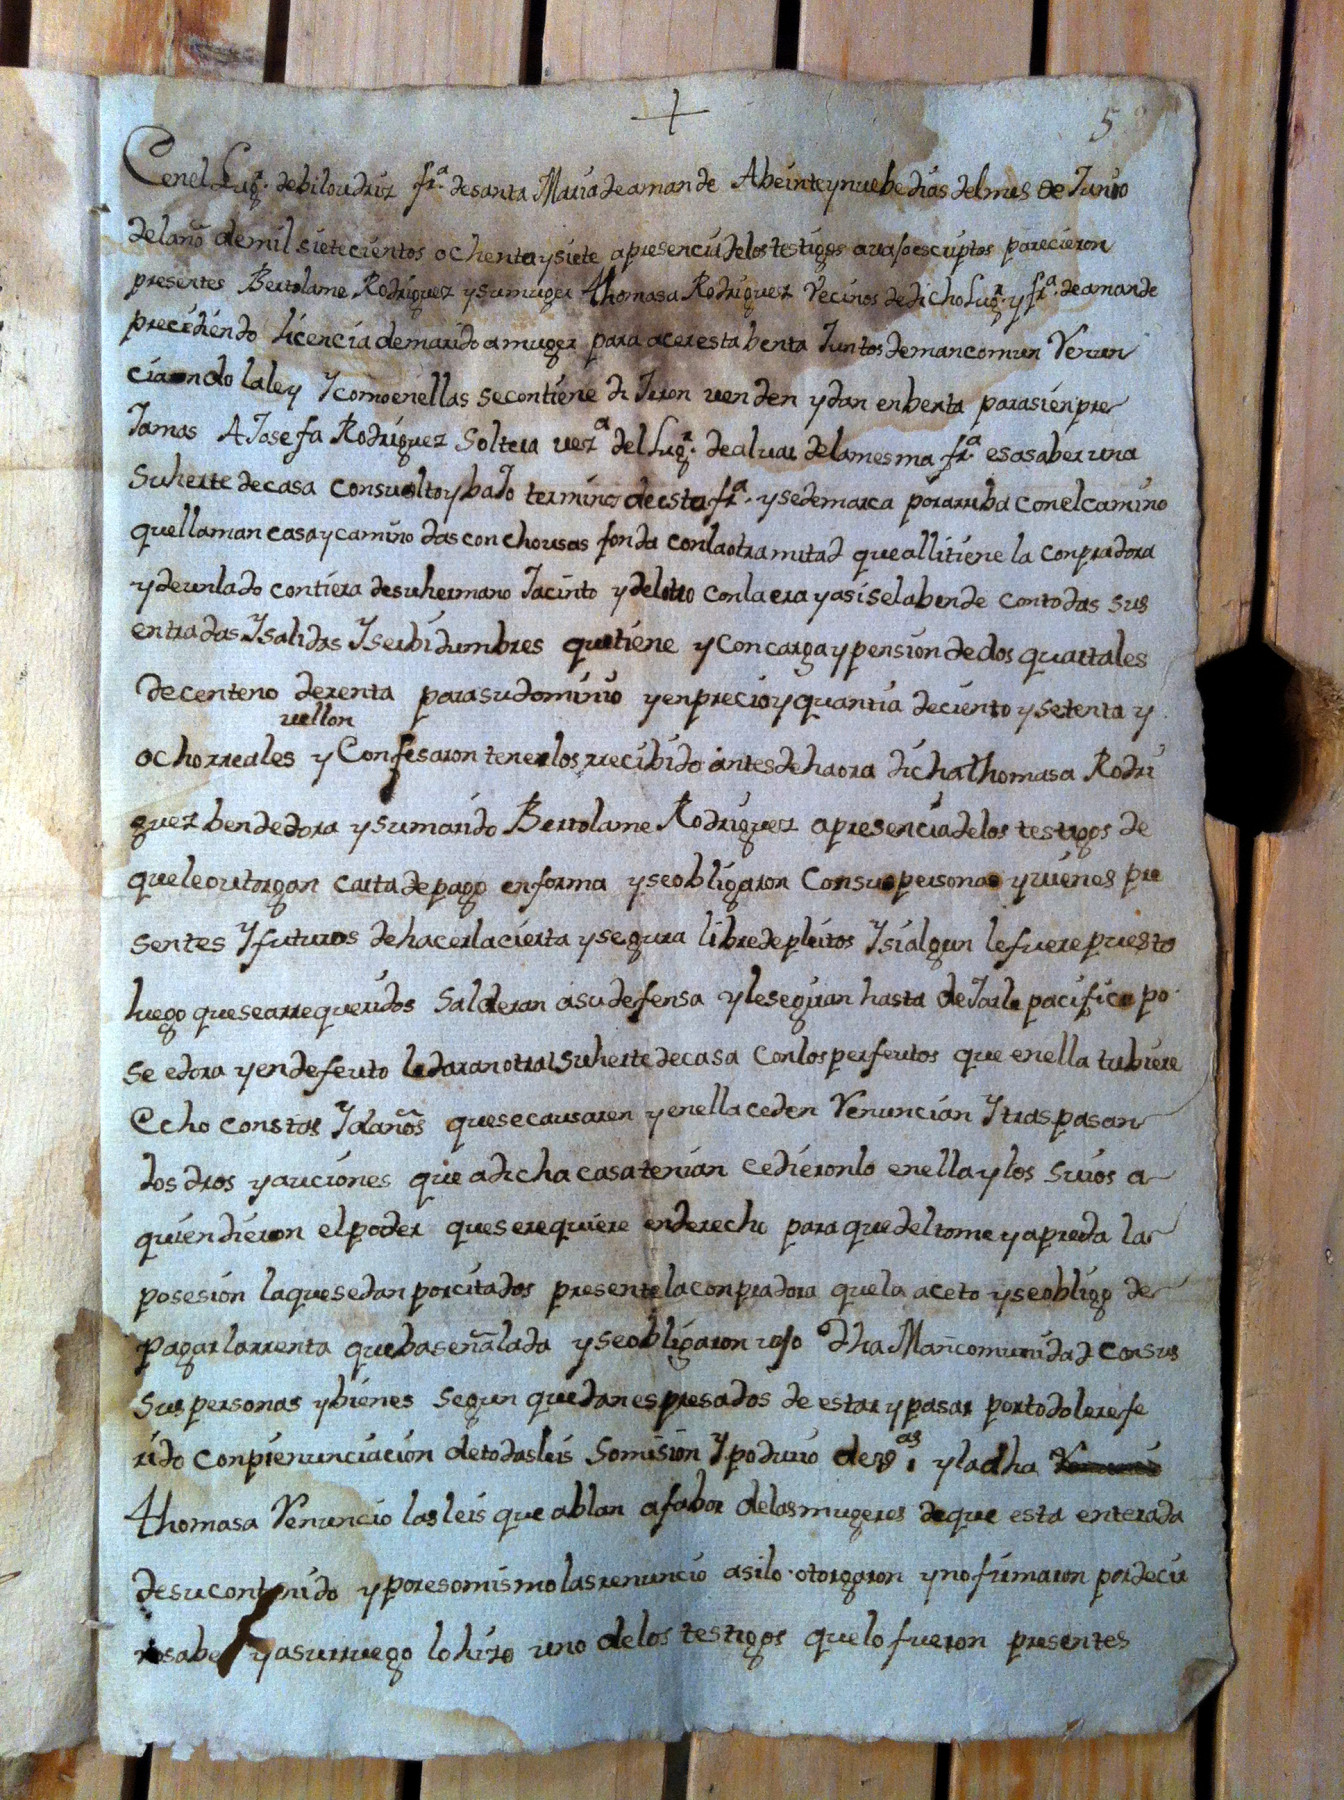 5
Cenel Lugr. debiloudriz fra. desanta Maria deamande Abeinteynuebe dias delmes de Junio
delaño demil sietecientos ochentaysiete apresencia delostestigos avajoescriptos parecieron
presentes Bertolame Rodriguez ysumuger thomasa Rodriguez Vecinos dedicho Lugr. y fra. deamande
precediendo licencia demarido amuger para acerestabenta Juntos demancomun Renun
ciaondo laley Ycomoenellas secontiene diJeron venden ydan enbenta parasienpre
Jamas A Josefa Rodriguez Soltera veza del Lugr. dealvar delamesma fra. esasaber una
Suherte decasa consualtoybaJo termino deesta fra. ysedemarca porarriba conelcamino
quellaman casaycamino dasconchousas fonda conlaotramitad queallitiene la conpradora
ydeunlado contiera desuhermano Jacinto ydelotro conlaera yasiselabende contodas sus
entradas Ysalidas Yserbidumbres quetiene yConcargaypension dedos quartales
decenteno derenta parasudominio yenprecioyquantia deciento ysetenta y
vellon
ochorreales yConfesaron tenerlos rrecibido antesdehaora dichathomasa Rodri
guez bendedora ysumarido Bertolame Rodriguez apresenciadelos testigos de
queleoutorgan cartadepago enforma yseobligaron Consuspersonas yvienes pre
sentes Yfuturos dehacerlacierta ysegura libredepleitos Ysialgun lefuerepuesto
luego quesearrequeridos Salderan asudefensa yleseguiran hasta deJarle pacifica po
seedora yendefeuto ledaranotralsuhertedecasa conlosperfeutos que enella tubiere
Echo constas Ydaños quesecausaren yenellaceden Renuncian Ytraspasan
los dros yauciones que adicha casatenian cedieronlo enellaylos suios a
quiendieron elpoder queserequiere enderecho para quedeltome yaprenda la
posesion laquesedan porcitados presentelaconpradora quela aceto yseobligo de
pagarlarrenta quebaseñalada yseobligaron vajo dha Mancomunidad consus
Sus personas ybienes segun quedanespresados de estar ypasar portodolerefe
rido conprenunciacion detodasleis Somision Ypoderio deJas. yladha
thomasa Renuncio lasleis que ablan afabor delasmugeres deque esta enterada
desucontenido yporesomismolasrenuncio asilo otorgaron ynofirmaron pordecir
nosaber yasurruego lohizo uno delos testigos quelofueron presentes